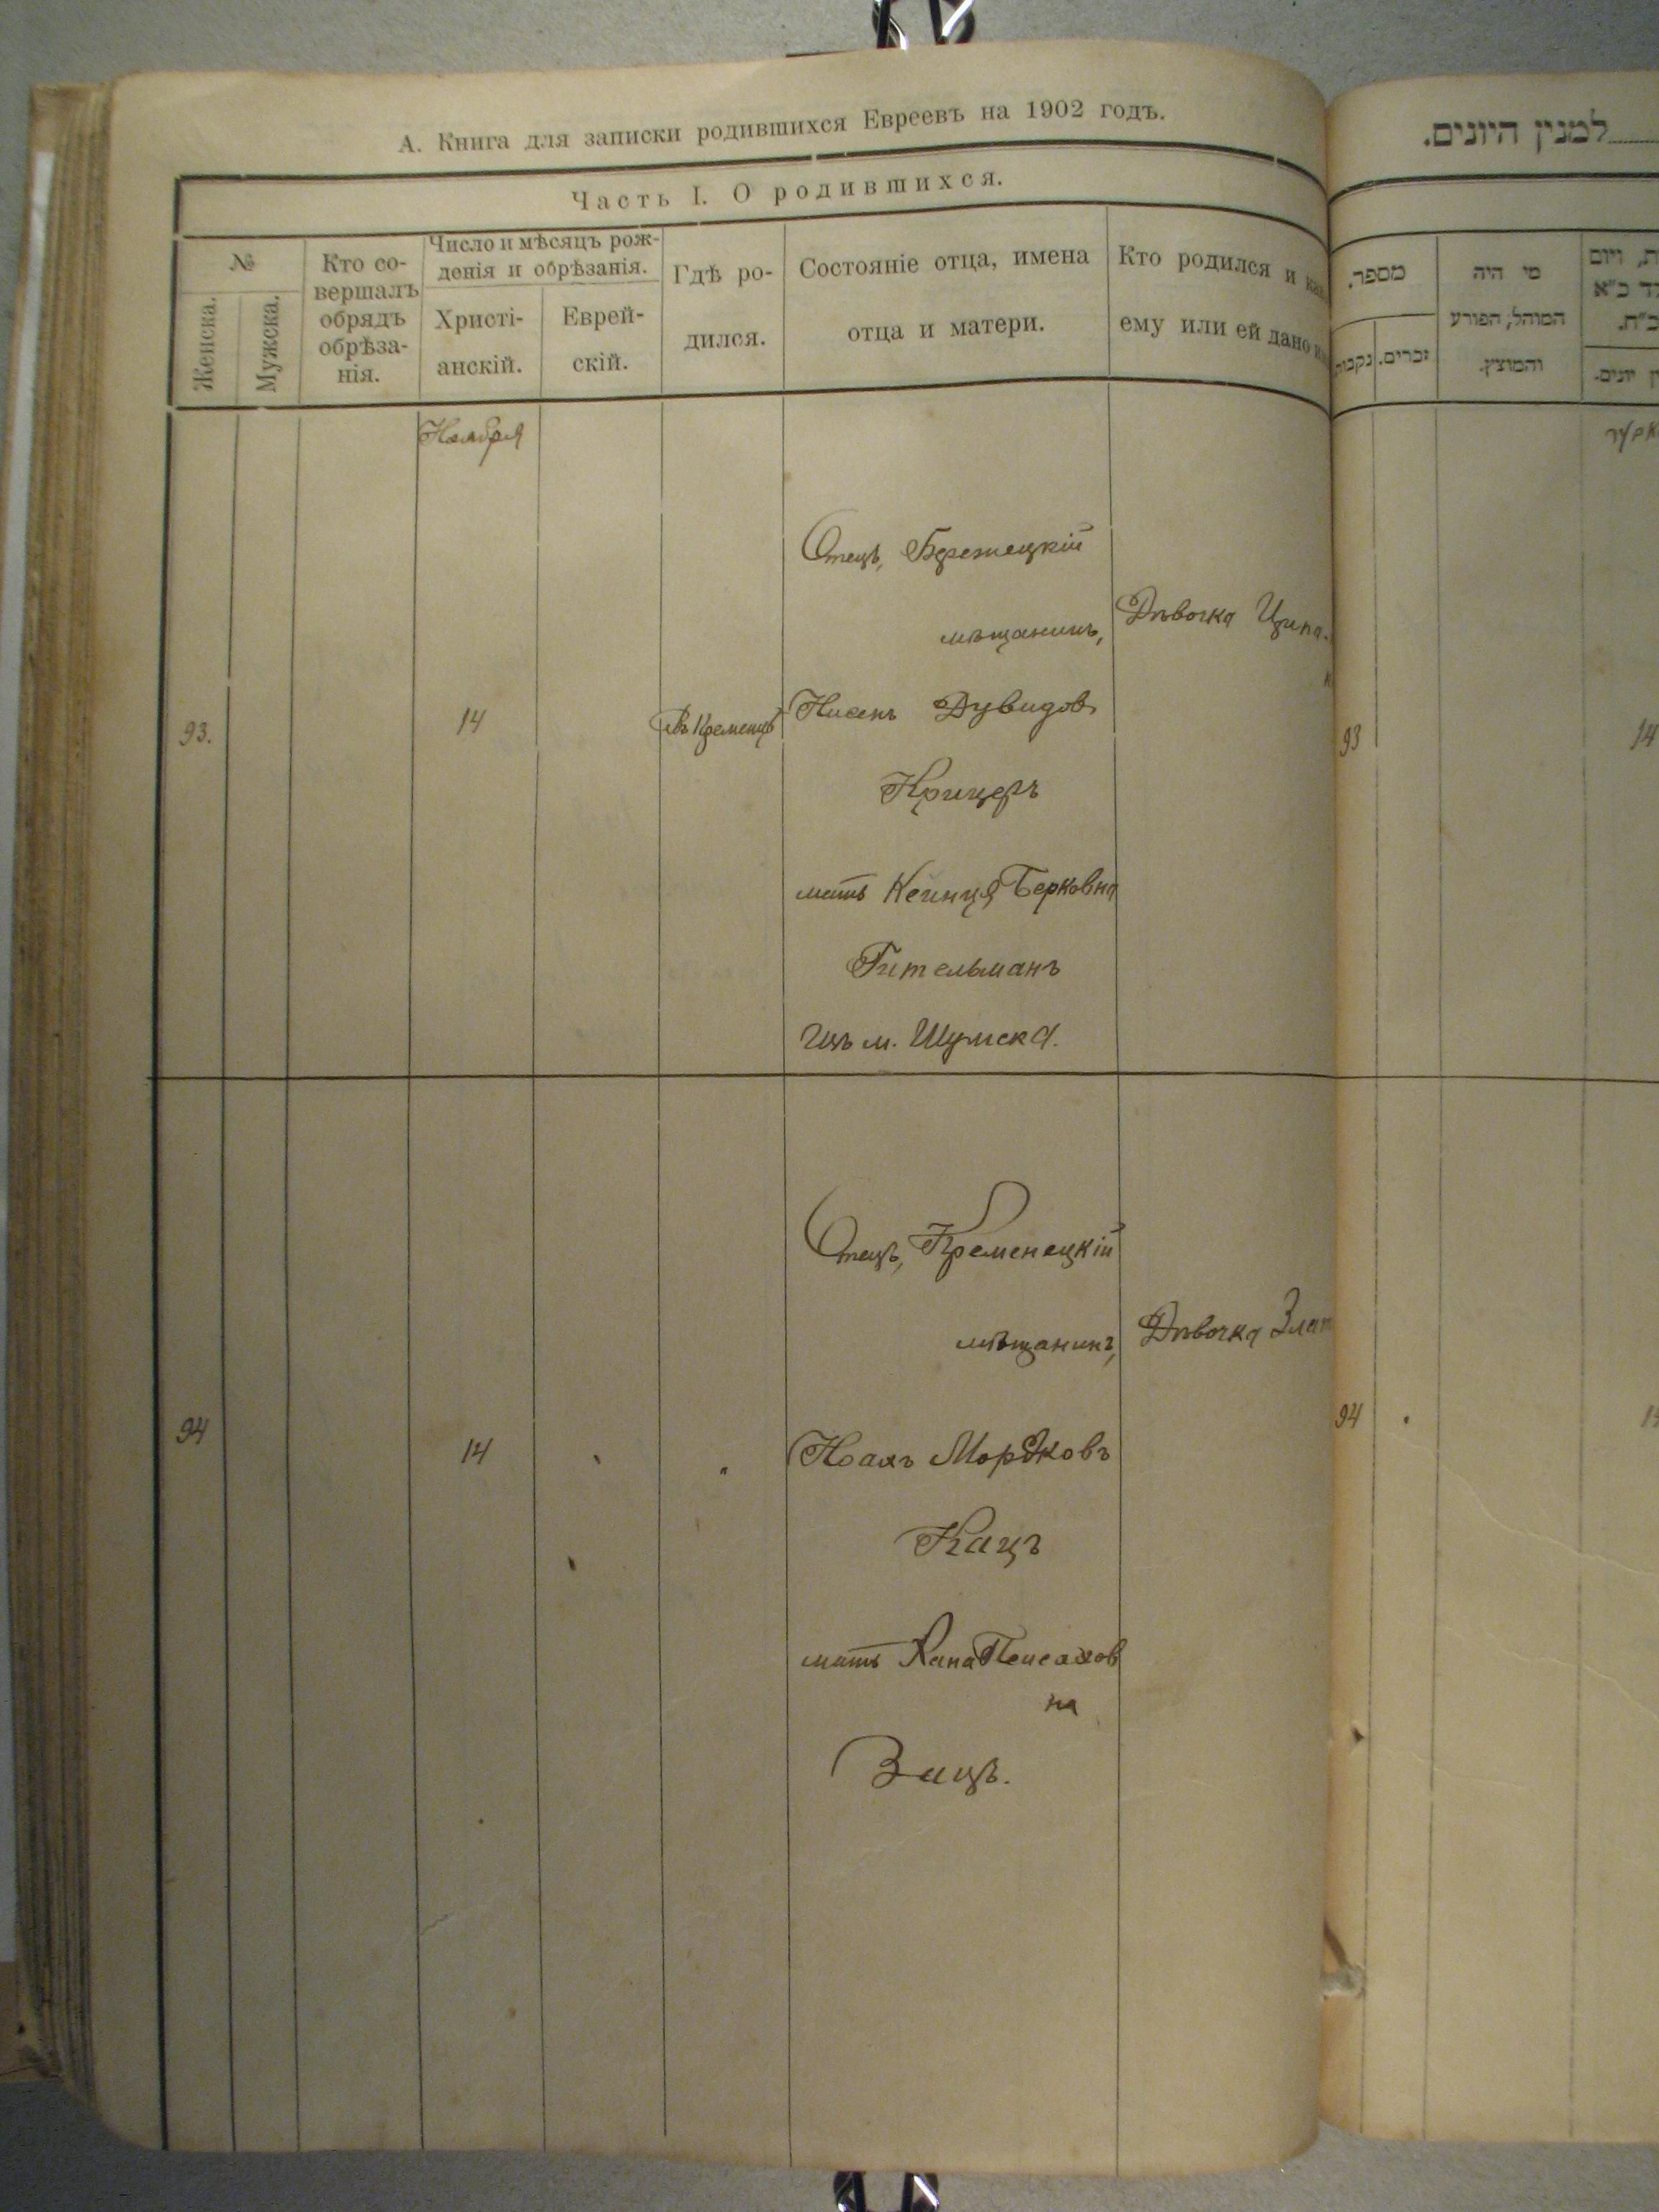 А. Книга для записки родившихся Евреевъ на 1902 годъ.
Часть I. О родившихся.
№
Женска.
Мужска.
Кто со-
вершалъ
обрядъ
обрѣза-
нія.
Число и мѣсяцъ рож-
денія и обрѣзанія.
Христі-
анскій.
Еврей-
скій.
Гдѣ ро-
дился.
Состояніе отца, имена
отца и матери.
Кто родился и
ему или ей дано
Ноября
93.
14
Въ Кременцѣ
Отецъ, Бережецкій
мѣщанинъ,
Нисенъ Дувидов
Крицеръ
мать Кейнця Берковна
Гительманъ
изъ м. Шумска.
Дѣвочка Ципа
94
14
"
Отецъ, Кременецкій
мѣщанинъ,
Ноахъ Мордковъ
Кацъ
мать Хана Пейсахов
на
Зицъ.
Дѣвочка Злат
למנין היונים.
מספר.
זכרים.
נקבות
מי היה
המוהל, הפורע
והמוצץ.
93
14
94